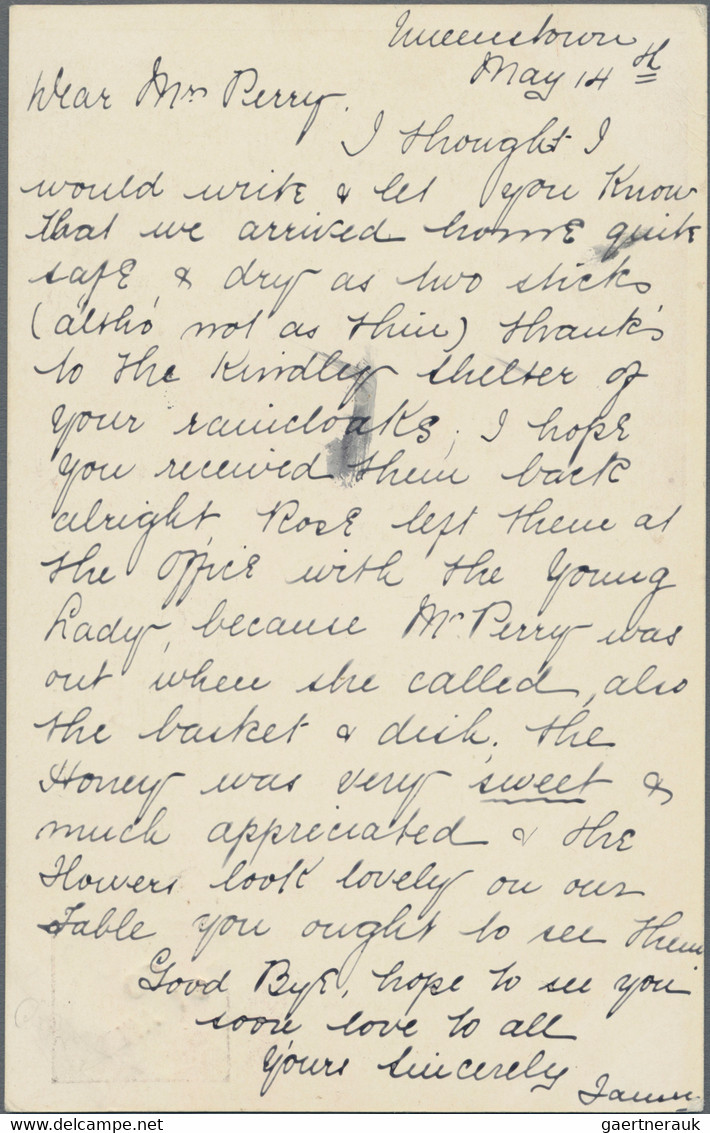 Queenstown
May 14th
Dear Mrs Perry.
I thought I
would write & let you know
that we arrived home quite
safe & dry as two sticks
(altho' not as thin) thanks
to the kindly shelter of
your raincloaks, I hope
you received them back
alright, Rose left them at
the office with the Young
Lady, because Mr Perry was
out when she called, also
the basket & dish. the
Honey was very sweet &
much appreciated & the
flowers look lovely on our
Table you ought to see them
Good Bye, hope to see you
soon love to all
Yours sincerely
gaertnerauk